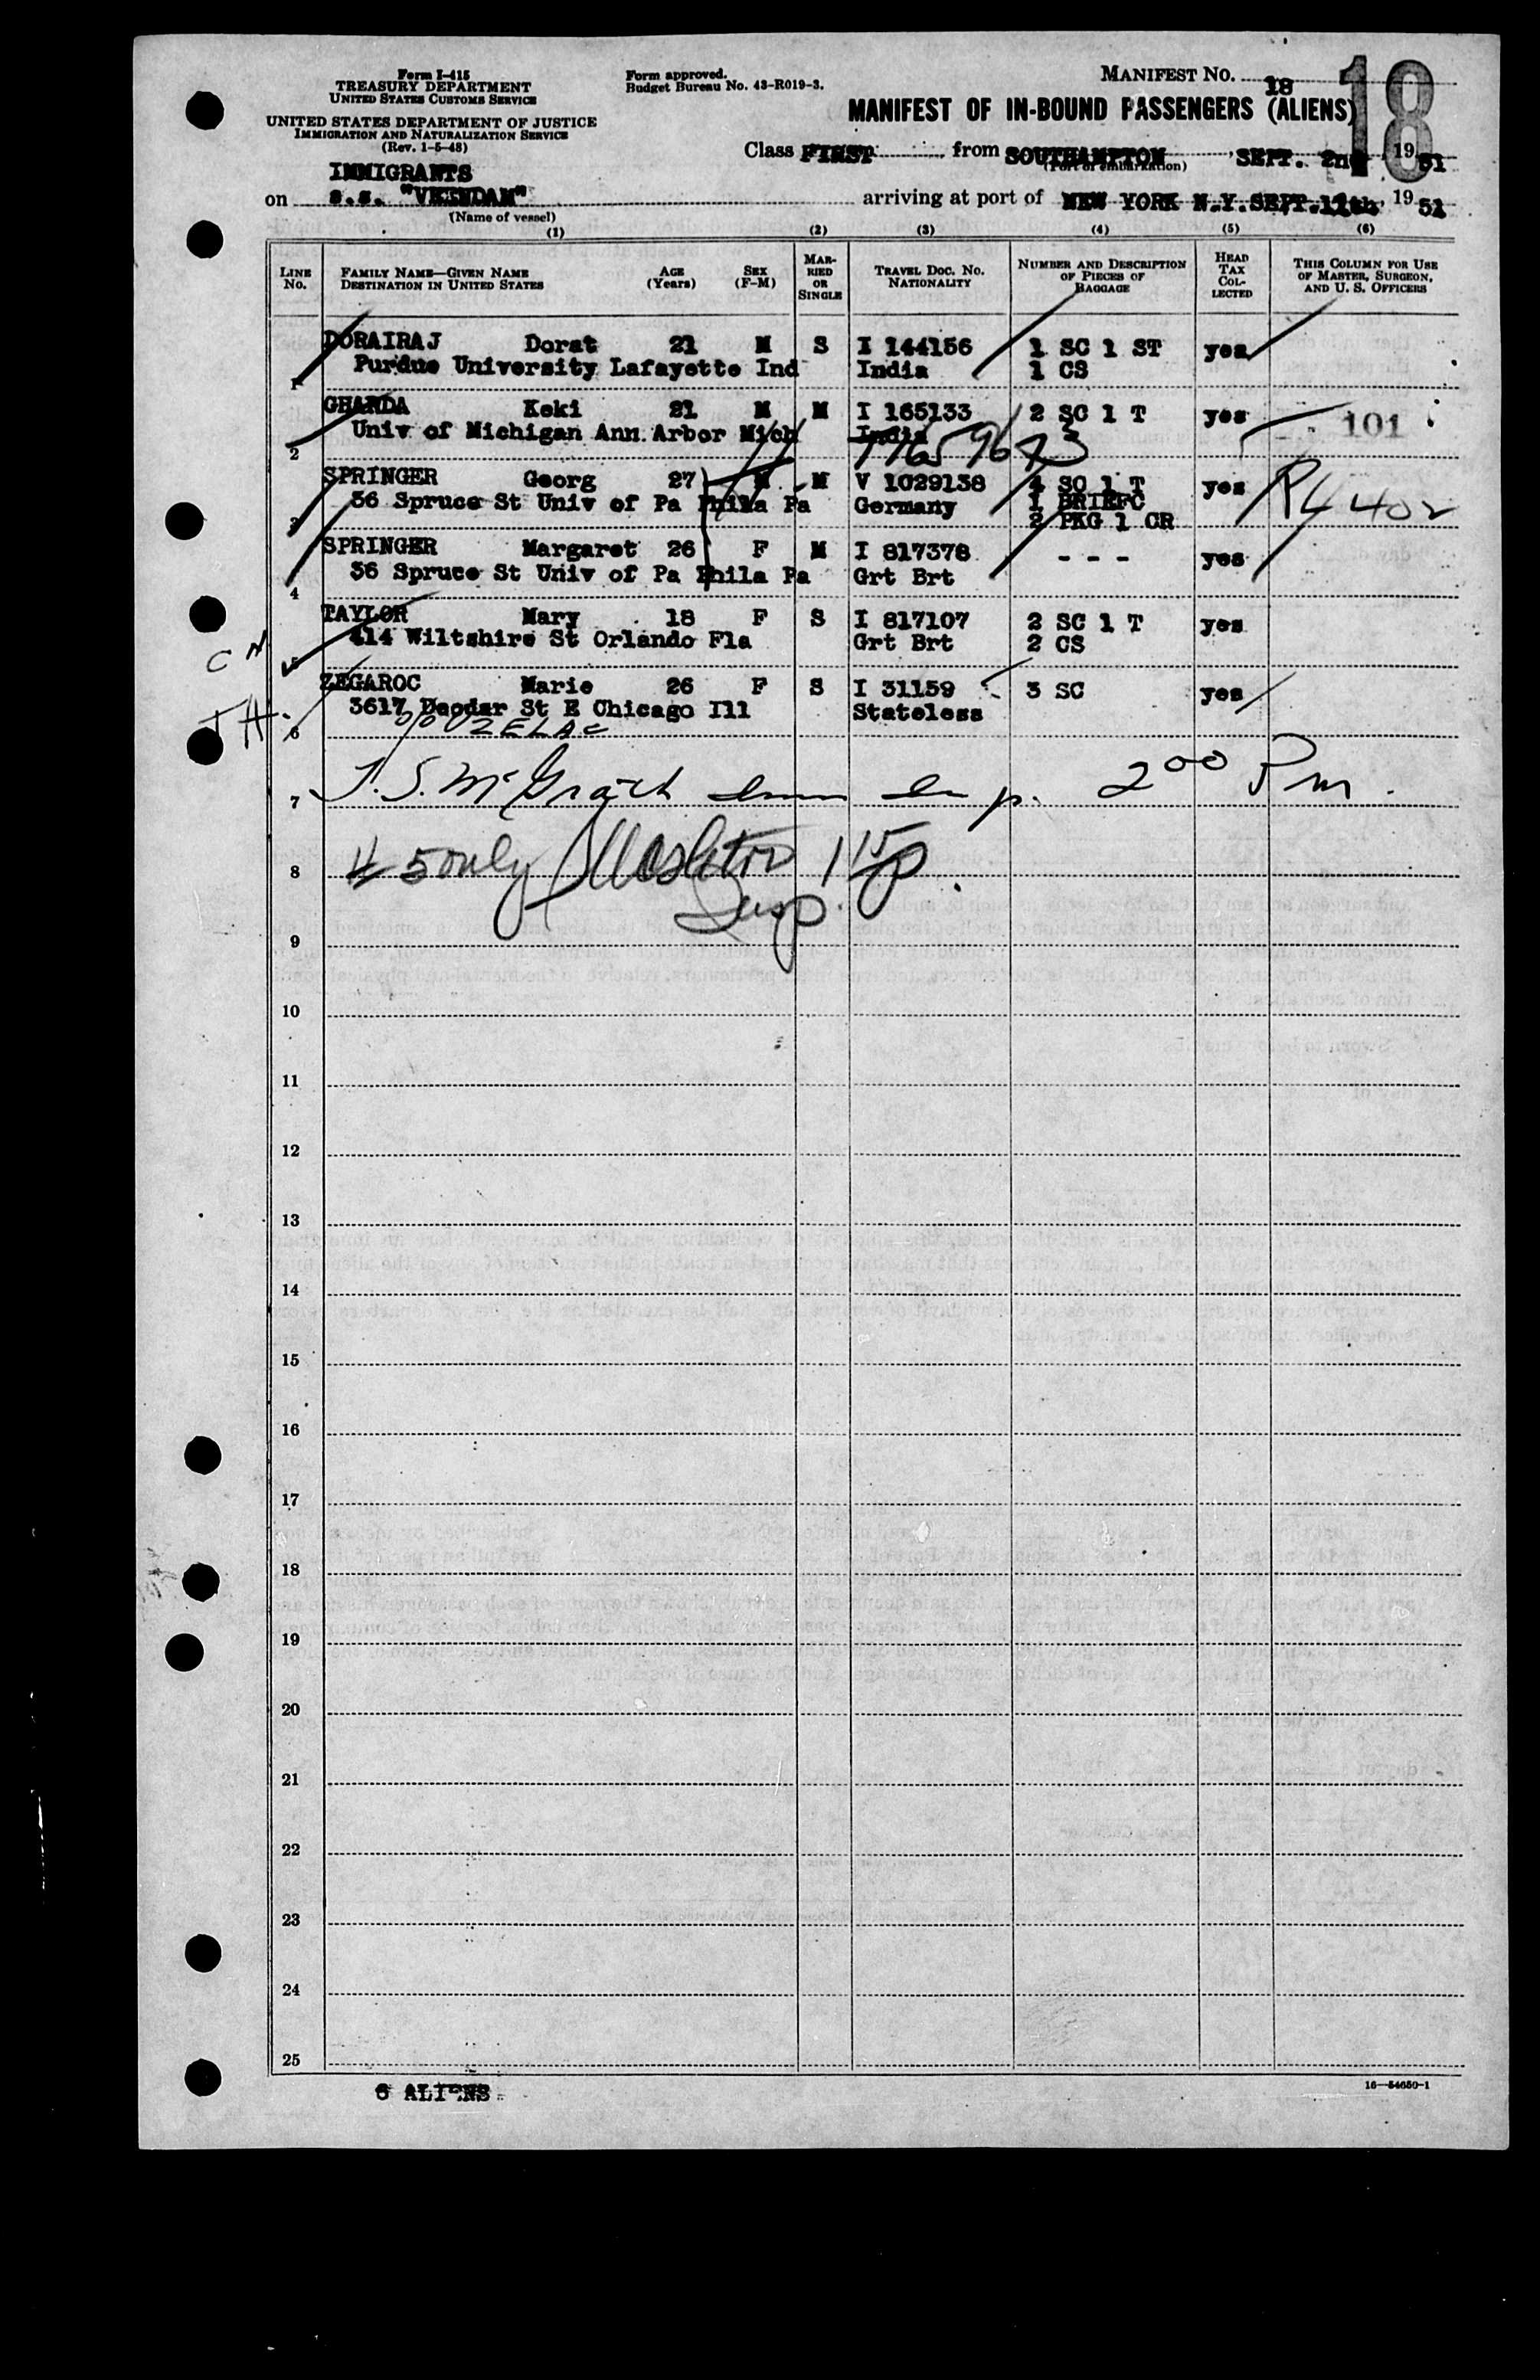 Form I-415
TREASURY DEPARTMENT
UNITED STATES CUSTOMS SERVICE
UNITED STATES DEPARTMENT OF JUSTICE
IMMIGRATION AND NATURALIZATION SERVICE
(Rev. 1-5-48)
Form approved.
Budget Bureau No. 43-R019-3.
MANIFEST NO. 18
18
MANIFEST OF IN-BOUND PASSENGERS (ALIENS)
Class FIRST from SOUTHAMPTON, SEPT. 2nd, 1951
(Port of embarkation)
IMMIGRANTS
on s.s. "VEENDAM" arriving at port of NEW YORK N.Y. SEPT. 11th, 1951
(Name of vessel)
(1) (2) (3) (4) (5) (6)
LINE No. FAMILY NAME—GIVEN NAME DESTINATION IN UNITED STATES AGE (Years) SEX (F-M) MARRIED OR SINGLE TRAVEL DOC. NO. NATIONALITY NUMBER AND DESCRIPTION OF PIECES OF BAGGAGE HEAD TAX COLLECTED THIS COLUMN FOR USE OF MASTER, SURGEON, AND U. S. OFFICERS
1 DORAIRAJ Dorat 21 M S I 144156 1 SC 1 ST yes
Purdue University Lafayette Ind India 1 CS
2 GHARDA Keki 21 M M I 165133 2 SC 1 T yes 101
Univ of Michigan Ann Arbor Mich India
3 SPRINGER Georg 27 M M V 1029138 4 SC 1 T yes
36 Spruce St Univ of Pa Phila Pa Germany 1 BRIEFC
2 PKG 1 CR
4 SPRINGER Margaret 26 F M I 817378 - - - yes
36 Spruce St Univ of Pa Phila Pa Grt Brt
5 TAYLOR Mary 18 F S I 817107 2 SC 1 T yes
414 Wiltshire St Orlando Fla Grt Brt 2 CS
6 ZEGAROC Marie 26 F S I 31159 3 SC yes
3617 Deodar St E Chicago Ill Stateless
c/o UZELAC
7 McGrath 2 00 Pm.
8 # 5 only
Insp.
9
10
11
12
13
14
15
16
17
18
19
20
21
22
23
24
25
6 ALIENS
16—54650-1